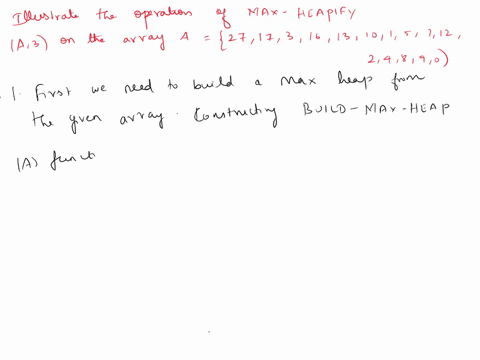 Illustrate the operation of MAX-HEAPIFY
(A,3) on the array A = {27, 17, 3, 16, 13, 10, 1, 5, 7, 12,
2, 4, 8, 9, 0)
1. First we need to build a max heap from
the given array. Constructing BUILD-MAX-HEAP
(A) funct